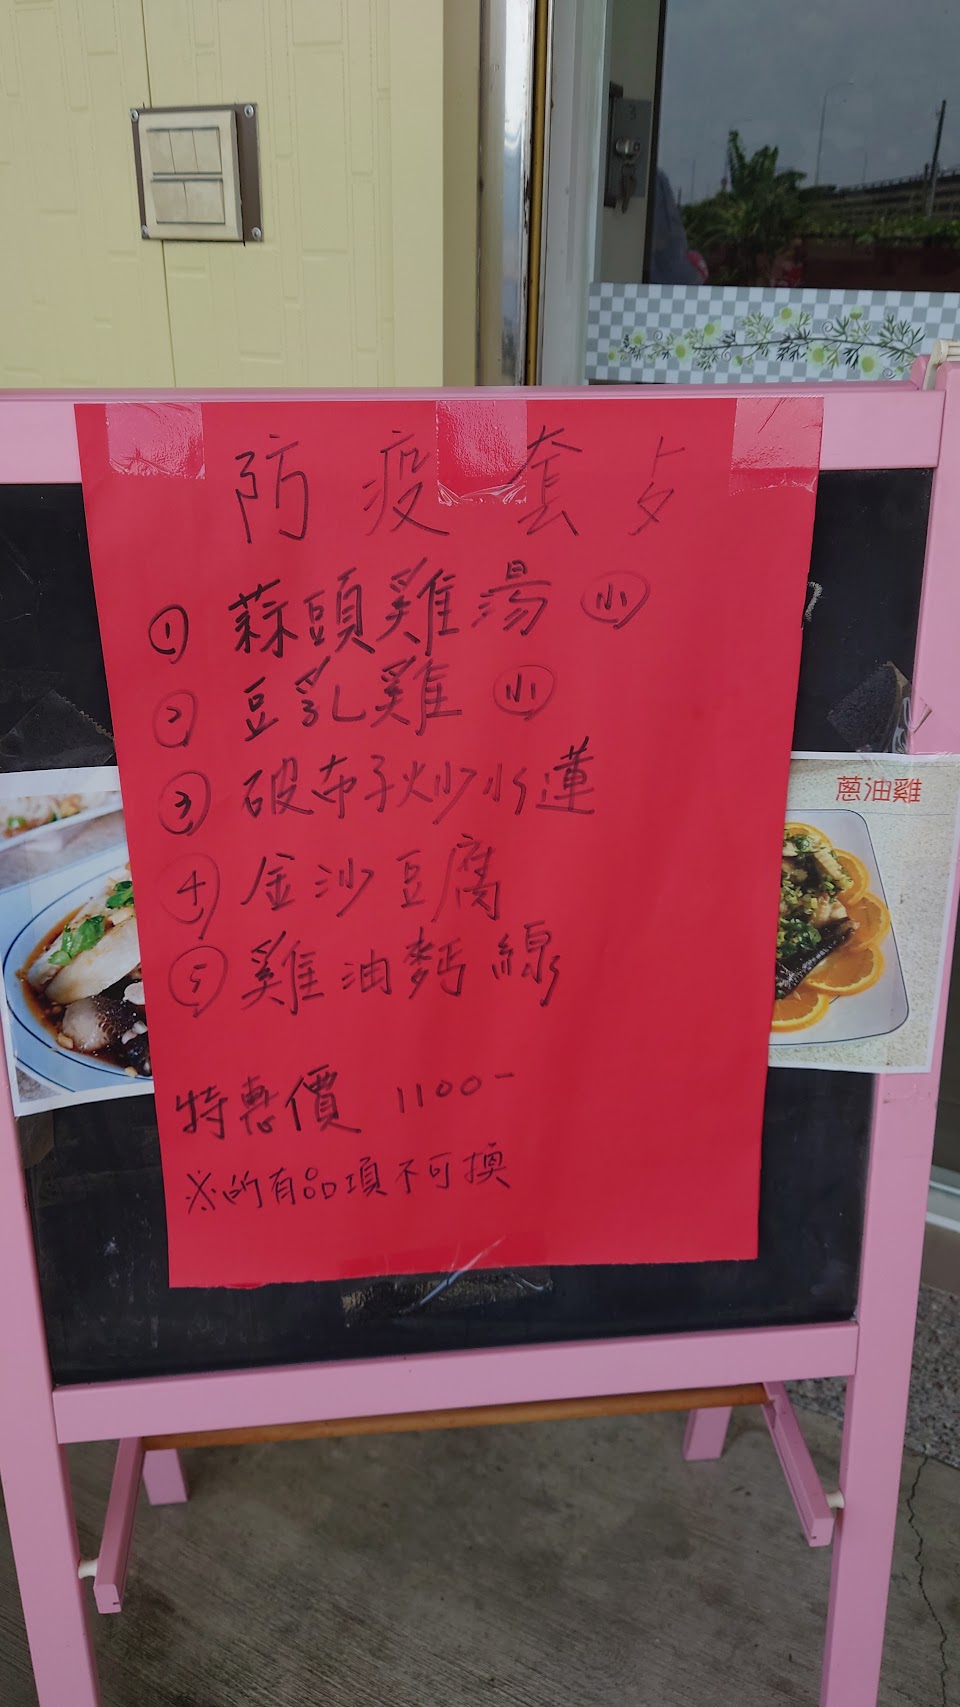 防疫套歺
① 蒜頭雞湯 小
② 豆乳雞 小
③ 破布子炒水蓮
④ 金沙豆腐
⑤ 雞油麵線
特惠價 1100-
※的有品項不可換
蔥油雞